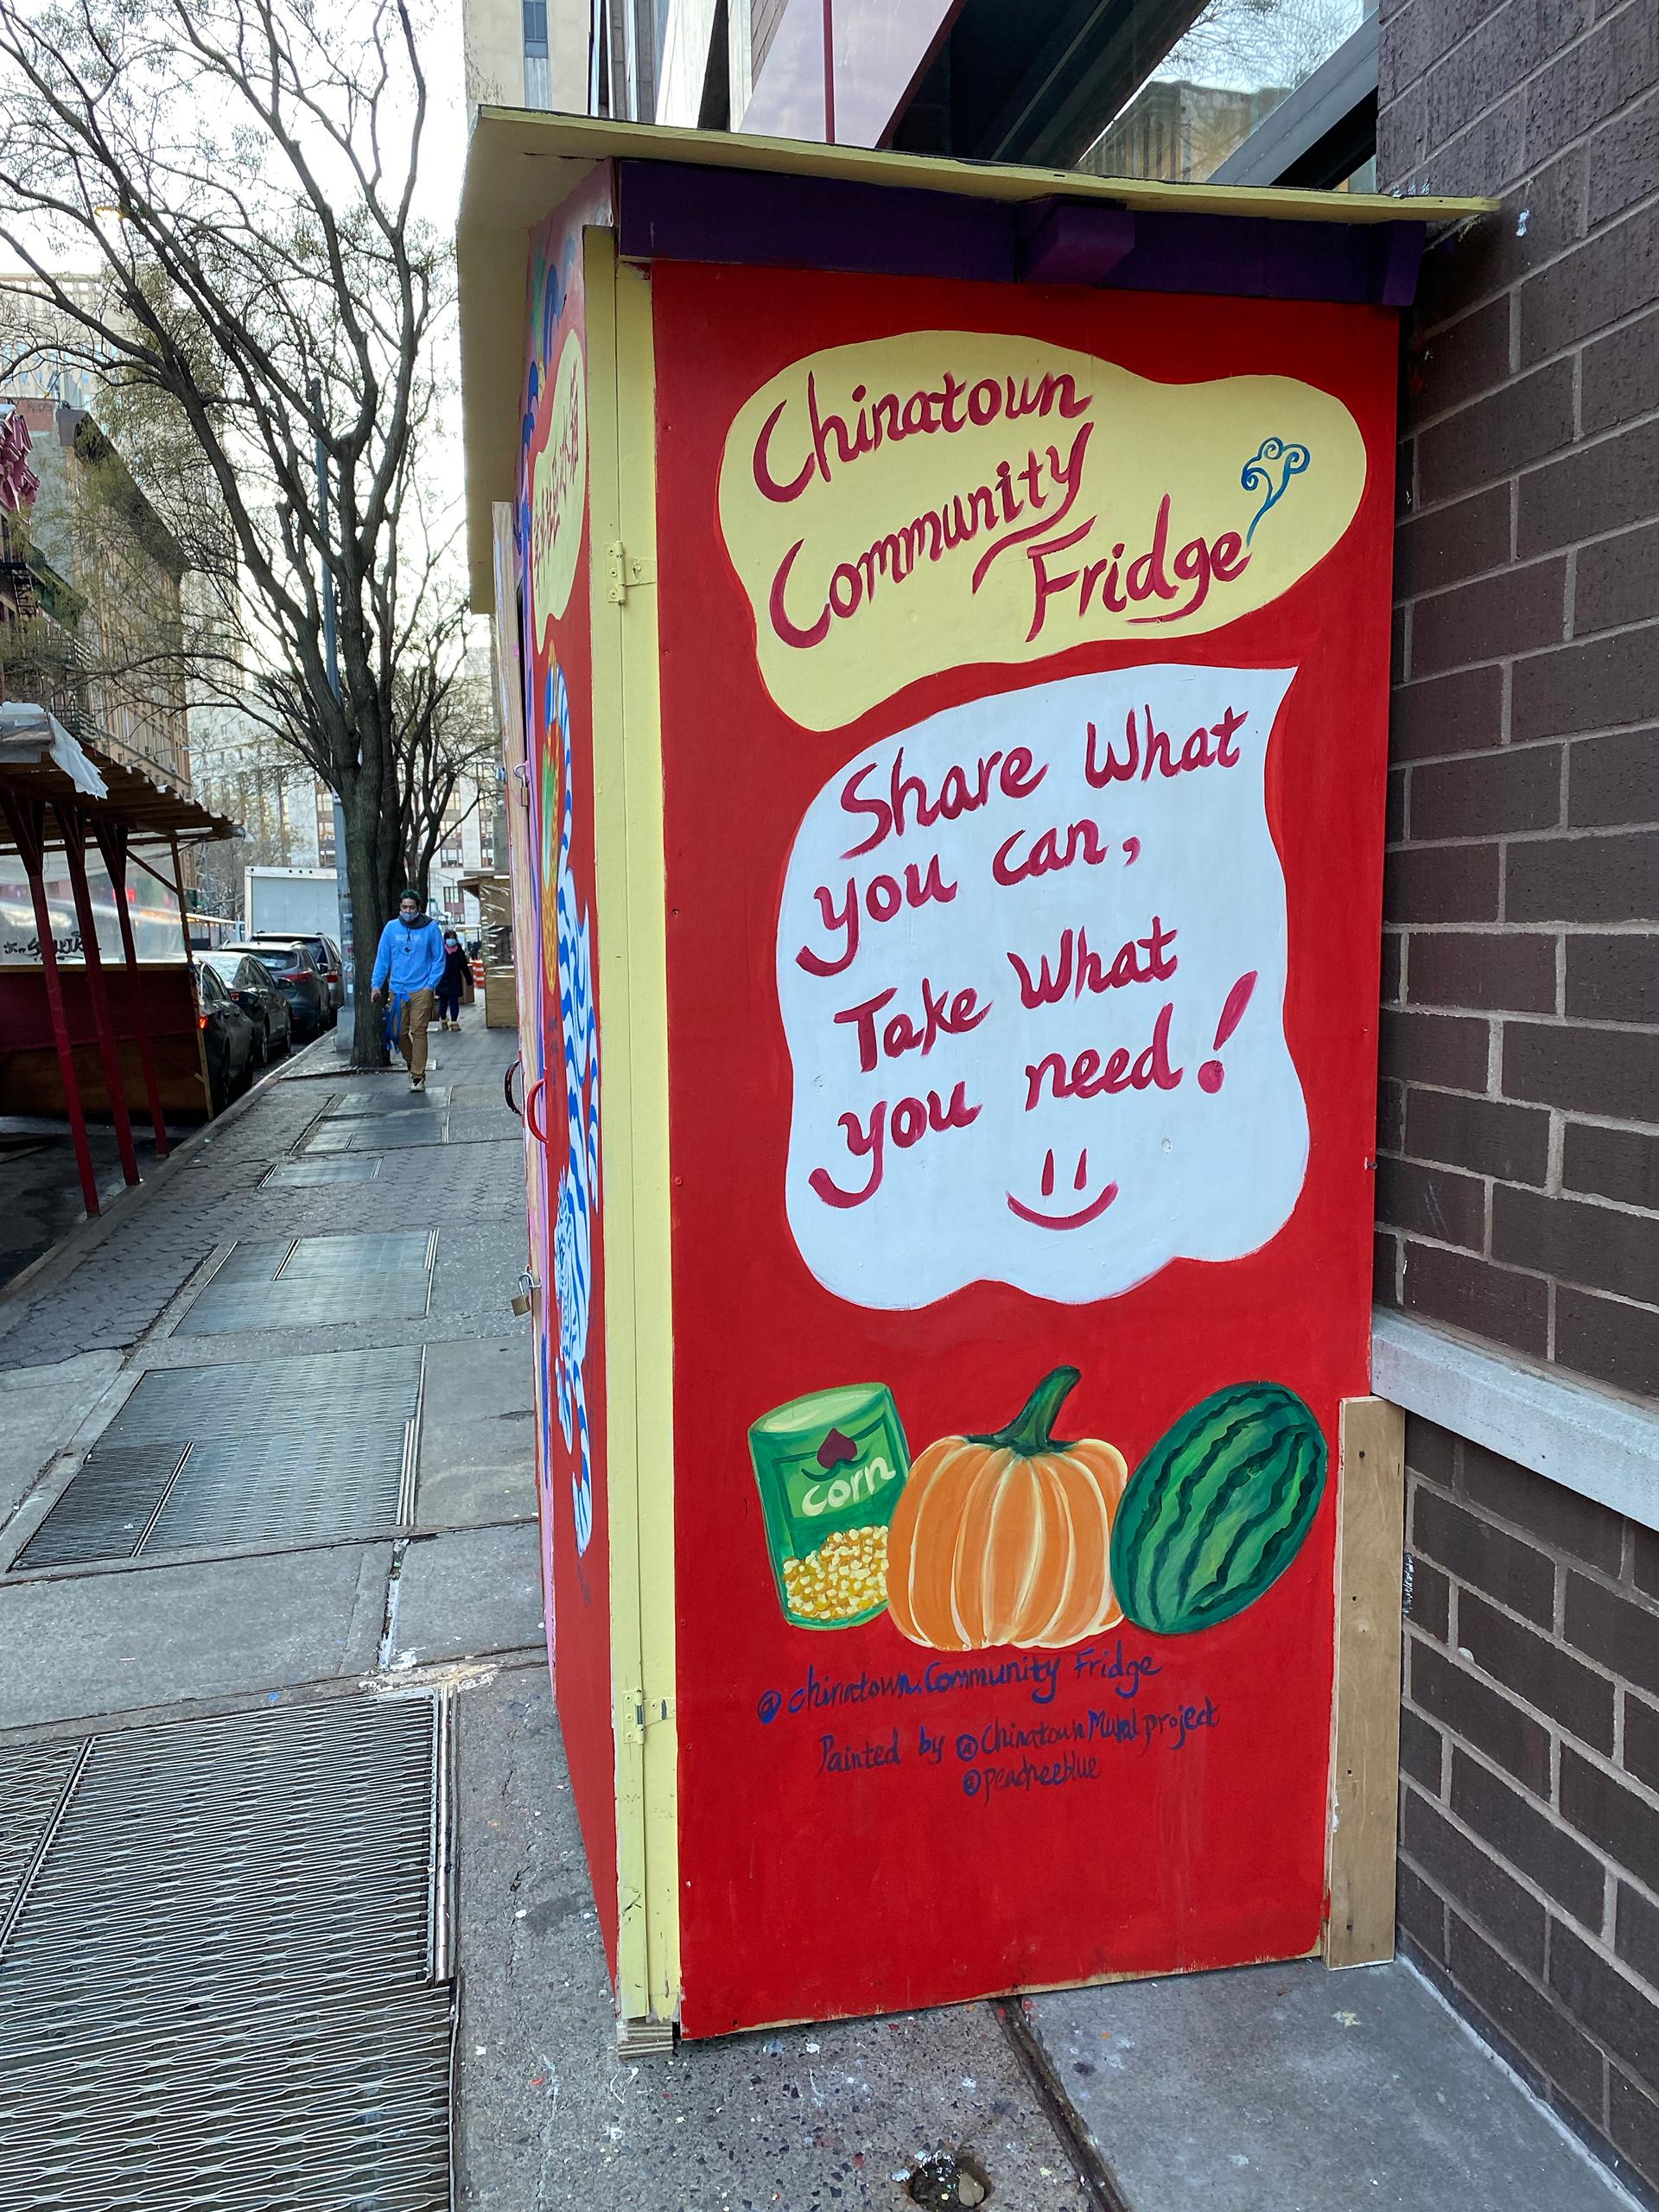 Chinatown
Community
Fridge
Share What
you can,
Take What
you need!
corn
@chinatown.Community Fridge
Painted by @ChinatownMuralproject
@peacheeblue